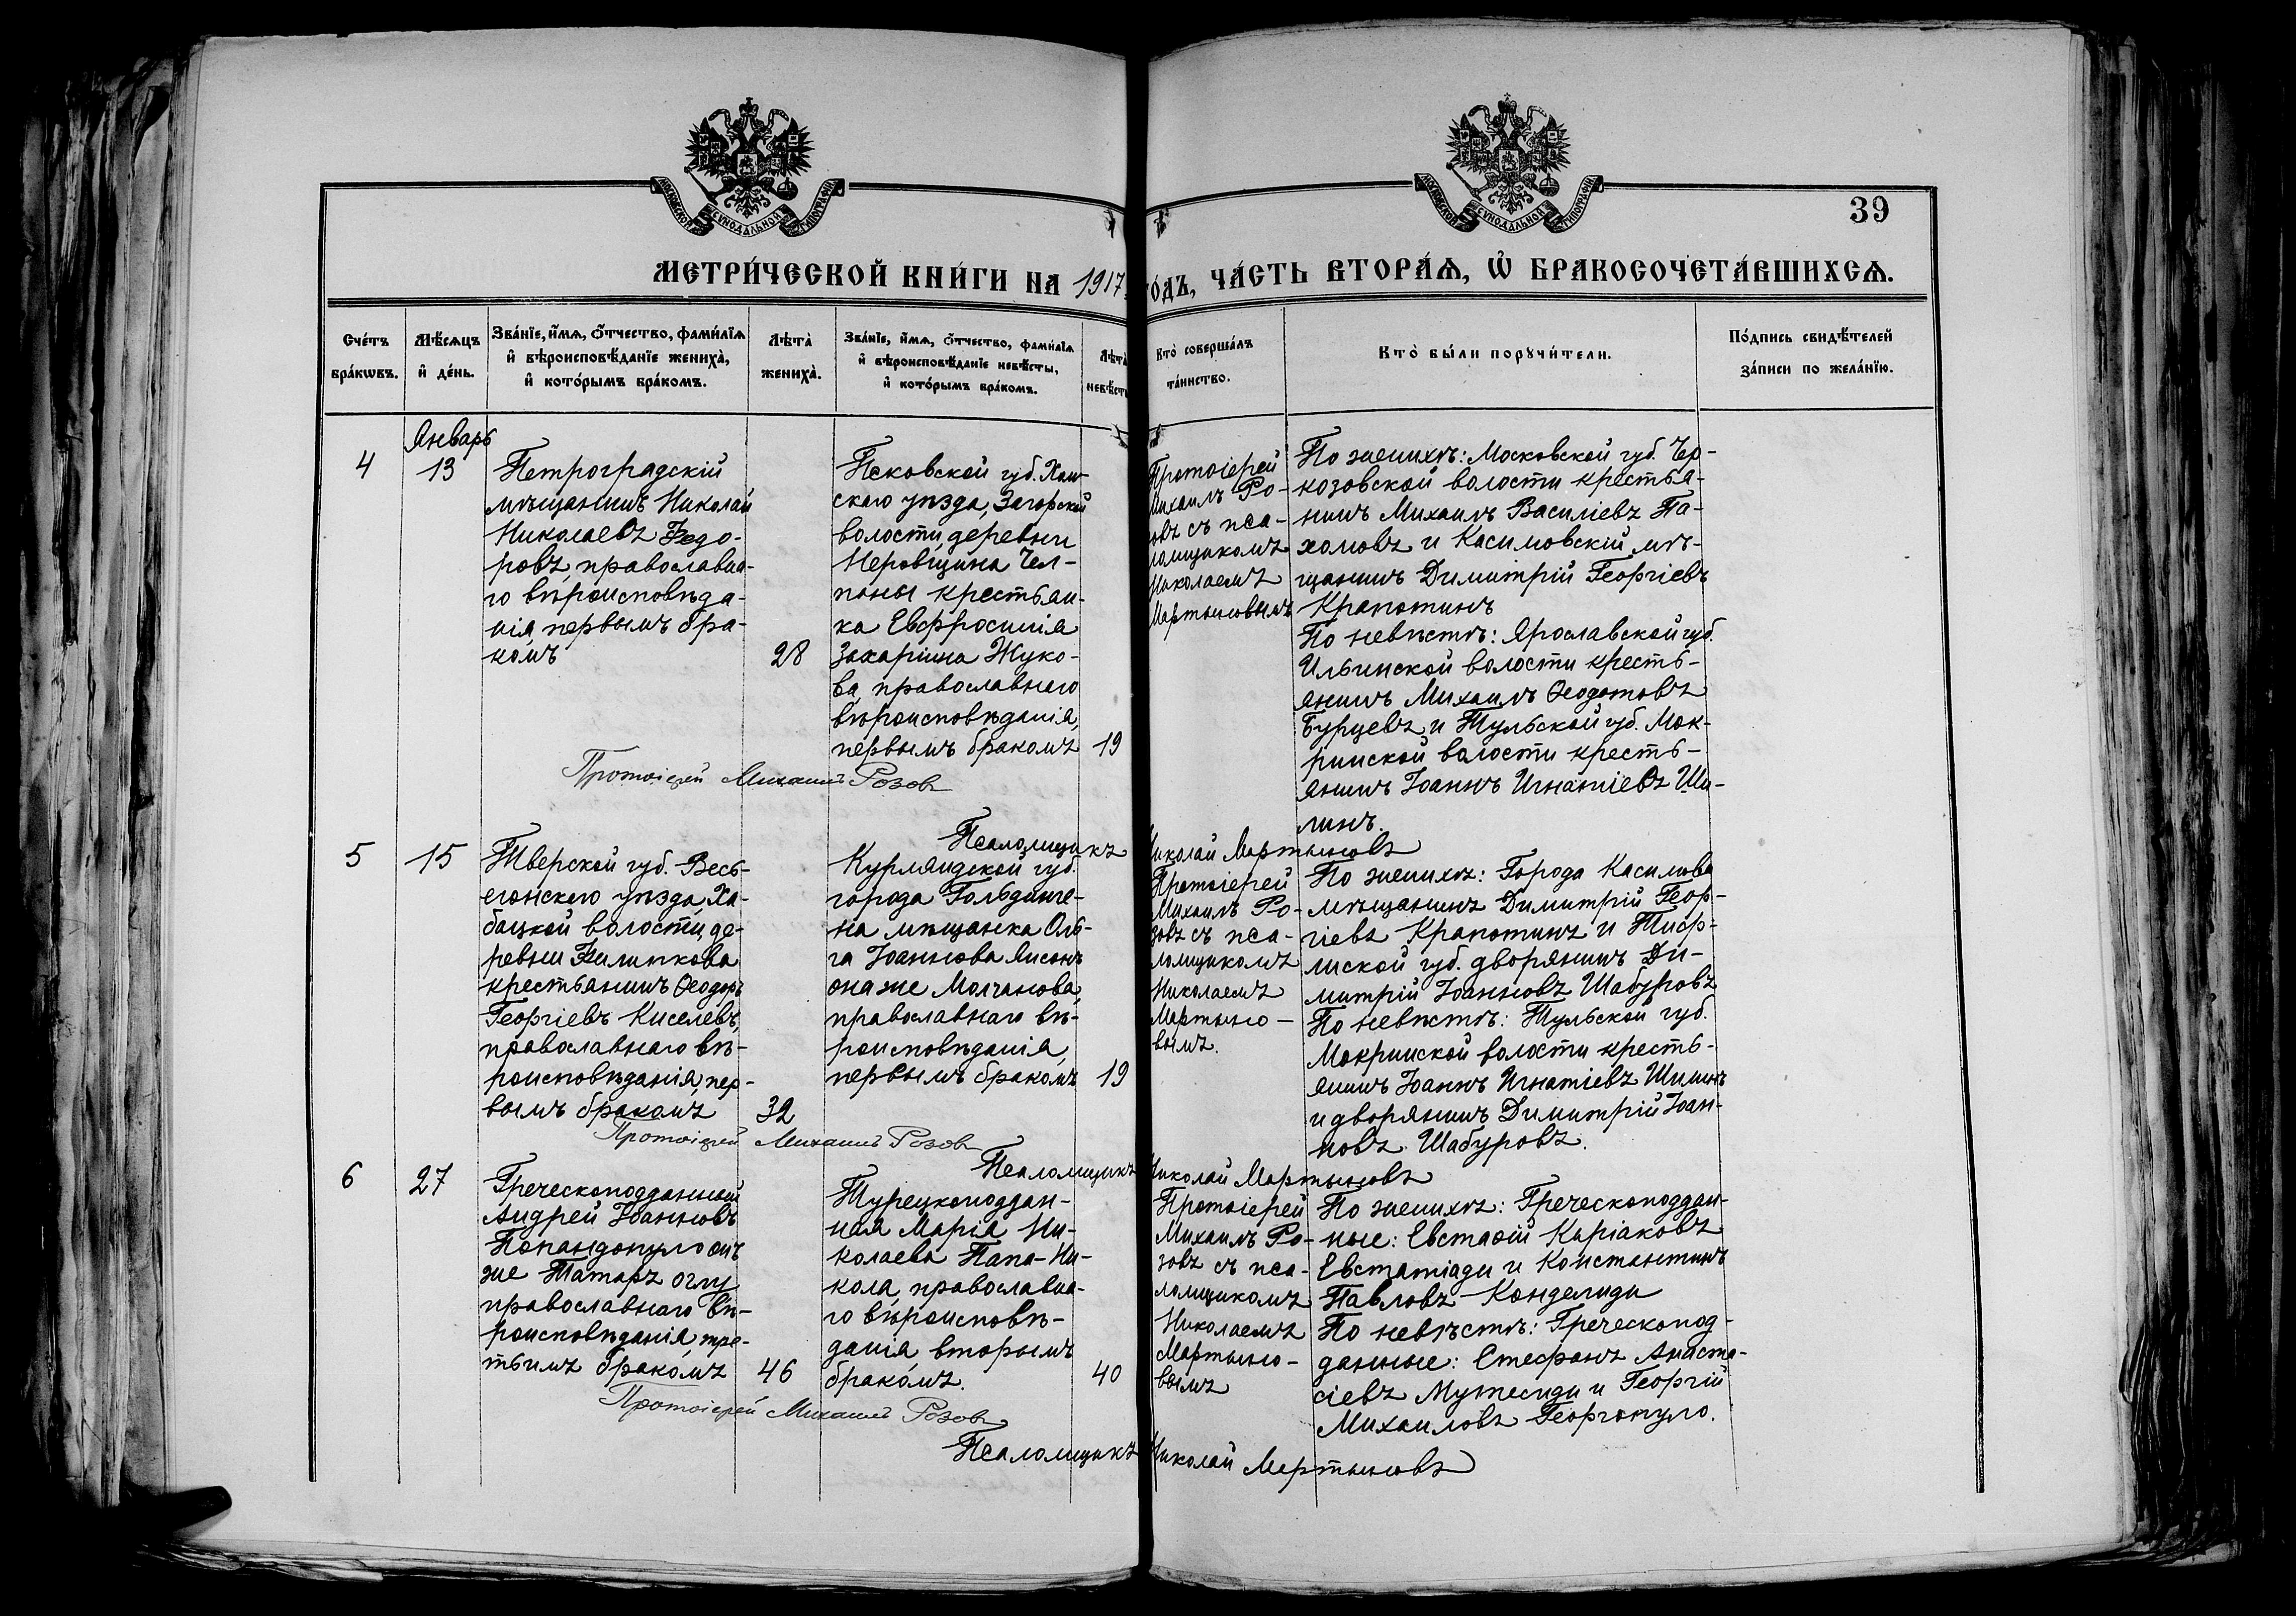 МОСКОВСКОЙ СѴНОДАЛЬНОЙ ТИПОГРАФІИ
МОСКОВСКОЙ СѴНОДАЛЬНОЙ ТИПОГРАФІИ
39
МЕТРИ́ЧЕСКОЙ КНИ́ГИ НА 1917 го́дъ, ЧА́СТЬ ВТОРА́Ѧ, Ѡ҆ БРАКОСОЧЕТА́ВШИХСѦ.
Сче́тъ бра́кѡвъ.
Мѣ́сѧцъ и҆ де́нь.
Зва́нїе, и҆́мѧ, ѻ҆́тчество, фами́лїѧ
и҆ вѣроисповѣ́данїе жениха̀,
и҆ кото́рымъ бра́комъ.
Лѣта̀ жениха̀.
Зва́нїе, и҆́мѧ, ѻ҆́тчество, фами́лїѧ
и҆ вѣроисповѣ́данїе невѣ́сты,
и҆ кото́рымъ бра́комъ.
Лѣта̀ невѣ́сты
Кто̀ соверша́лъ
та́инство.
Кто̀ бы́ли порꙋчи́тели.
По́дпись свидѣ́телей
за́писи по жела́нїю.
Январь
4
13
Петроградскій
мѣщанинъ Николай
Николаевъ Федо-
ровъ, православна-
го вѣроисповѣда-
нія, первымъ бра-
комъ
28
Псковской губ. Холм-
скаго уѣзда, Загорской
волости, деревни
Неровщина Чел-
паны крестьян-
ка Евфросинія
Захаріина Жуко-
ва, православнаго
вѣроисповѣданія,
первымъ бракомъ
19
Протоіерей
Михаилъ Ро-
зовъ съ пса-
ломщикомъ
Николаемъ
Мартыновымъ
По женихѣ: Московской губ. Чер-
козовской волости крестья-
нинъ Михаилъ Василіевъ Па-
хомовъ и Касимовскій мѣ-
щанинъ Димитрій Георгіевъ
Крапоткинъ
По невѣстѣ: Ярославской губ.
Ильинской волости кресть-
янинъ Михаилъ Ѳеодотовъ
Бурцевъ и Тульской губ. Мок-
ринской волости кресть-
янинъ Іоаннъ Игнатіевъ Ши-
линъ.
Протоіерей Михаилъ Розовъ
Псаломщикъ Николай Мартыновъ
5
15
Тверской губ. Весь-
егонскаго уѣзда, Ха-
бацкой волости, де-
ревни Филипкова
крестьянинъ Ѳеодоръ
Георгіевъ Киселевъ,
православнаго вѣ-
роисповѣданія, пер-
вымъ бракомъ
32
Курляндской губ.
города Гольдинге-
на мѣщанка Оль-
га Іоаннова Янсонъ
она же Молчанова,
православнаго вѣ-
роисповѣданія,
первымъ бракомъ
19
Протоіерей
Михаилъ Ро-
зовъ съ пса-
ломщикомъ
Николаемъ
Мартыно-
вымъ.
По женихѣ: Города Касимова
мѣщанинъ Димитрій Геор-
гіевъ Крапоткинъ и Тиф-
лиской губ. дворянинъ Ди-
митрій Іоанновъ Шабуровъ
По невѣстѣ: Тульской губ.
Мокринской волости кресть-
янинъ Іоаннъ Игнатіевъ Шилинъ
и дворянинъ Димитрій Іоан-
новъ Шабуровъ.
Протоіерей Михаилъ Розовъ
Псаломщикъ Николай Мартыновъ
6
27
Греческоподданный
Андрей Іоанновъ
Попандопуло онъ
же Татаръ оглу
православнаго вѣ-
роисповѣданія, тре-
тьимъ бракомъ
46
Турецкоподдан-
ная Марія Ни-
колаева Папа-Ни-
кола, православна-
го вѣроисповѣ-
данія, вторымъ
бракомъ.
40
Протоіерей
Михаилъ Ро-
зовъ съ пса-
ломщикомъ
Николаемъ
Мартыно-
вымъ
По женихѣ: Греческоподдан-
ные: Евстафій Киріаковъ
Евстатіади и Константинъ
Павловъ Конделиди
По невѣстѣ: Греческопод-
данные: Стефанъ Анаста-
сіевъ Мутесиди и Георгій
Михаиловъ Георгопуло.
Протоіерей Михаилъ Розовъ
Псаломщикъ Николай Мартыновъ